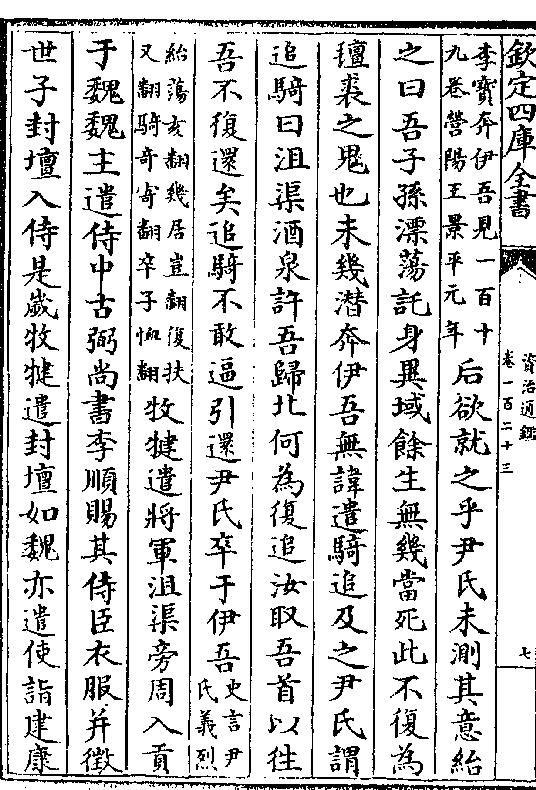 欽定四庫全書
資治通鑑
卷一百二十三
七
李寳奔伊吾見一百十
九卷營陽王景平元年
后欲就之乎尹氏未測其意紿
之曰吾子孫漂蕩託身異域餘生無幾當死此不復為
氊裘之鬼也未幾潜奔伊吾無諱遣騎追及之尹氏謂
追騎曰沮渠酒泉許吾歸北何為復追汝取吾首以往
吾不復還矣追騎不敢逼引還尹氏卒于伊吾
史言尹
氏義烈
紿蕩亥翻幾居豈翻復扶
又翻騎奇寄翻卒子恤翻
牧犍遣將軍沮渠旁周入貢
于魏魏主遣侍中古弼尚書李順賜其侍臣衣服并徵
世子封壇入侍是嵗牧犍遣封壇如魏亦遣使詣建康